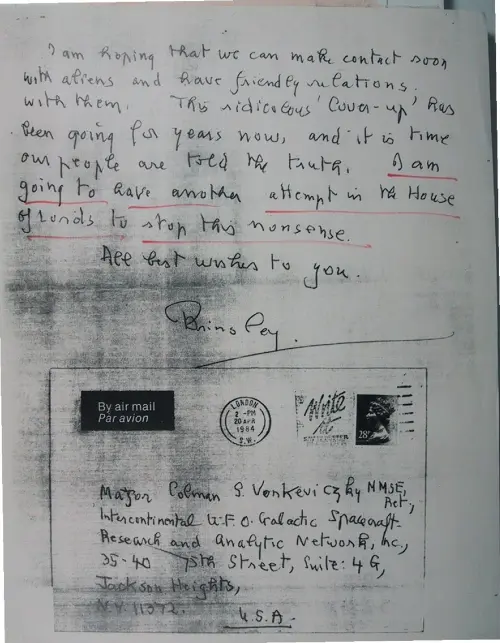 I am hoping that we can make contact soon
with aliens and have friendly relations.
with them. This ridiculous 'Cover-up' has
been going for years now, and it is time
our people are told the truth. I am
going to have another attempt in the House
of Lords to stop this nonsense.
All best wishes to you.
Brinsley.
By air mail
Par avion
LONDON
2 - PM
20 APR
1984
S.W.
Write
28
Major Colman S. Vonkeviczky NMSE,
Ret,
Intercontinental U.F.O. Galactic Spacecraft-
Research and Analytic Network, Inc.,
35-40 75th Street, Suite: 4 G,
Jackson Heights,
N.Y. 11372.
U.S.A.